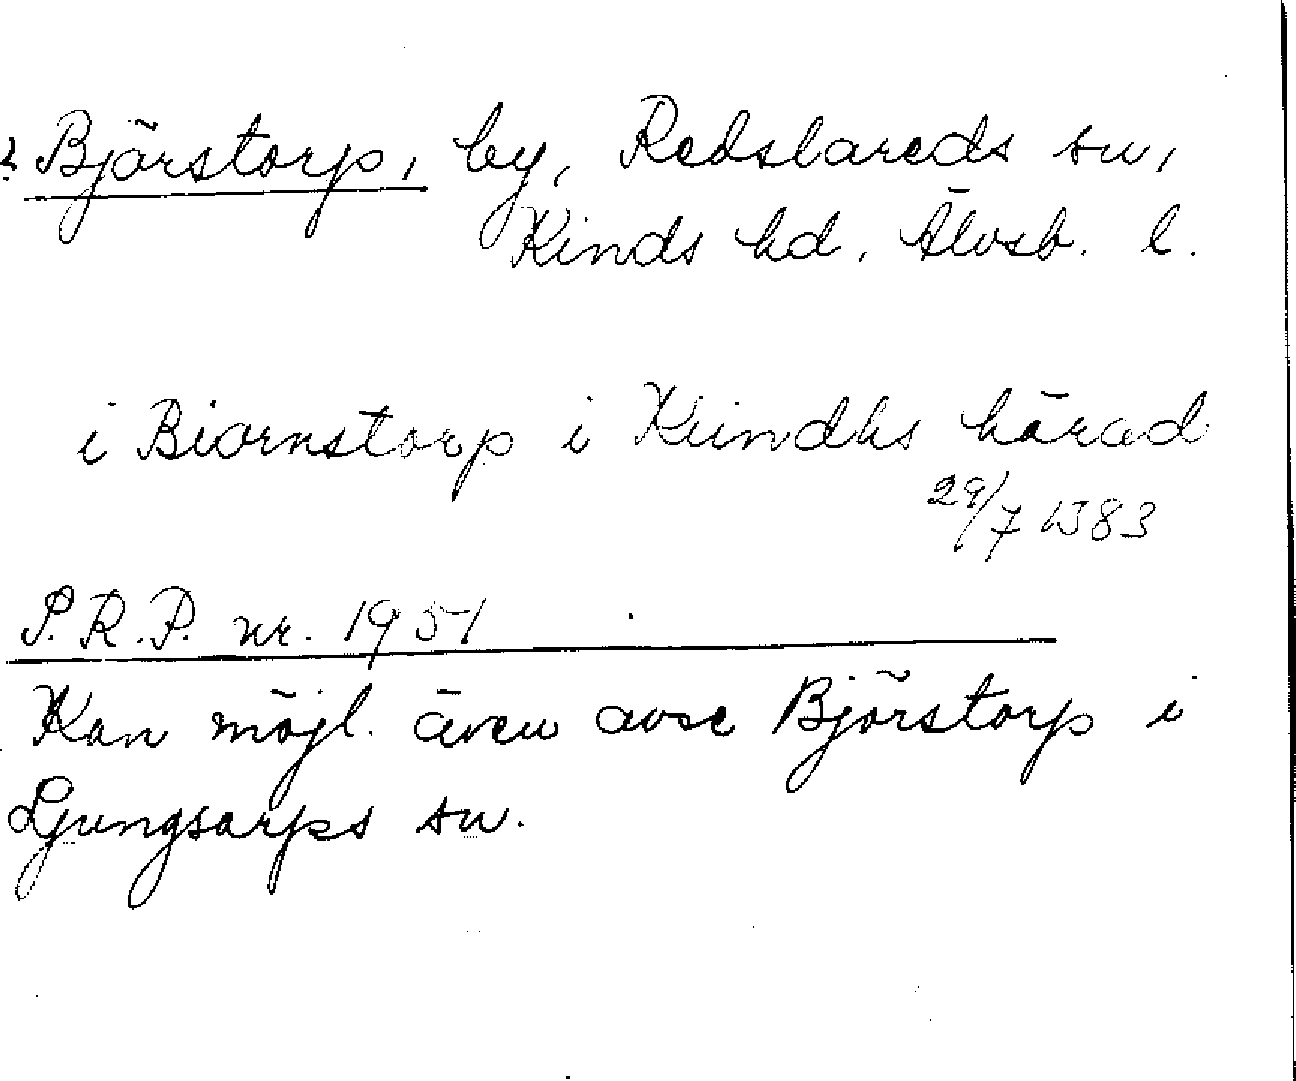 ? Björstorp, by, Redslareds sn,
Kinds hd, Älvsb. l.
i Biornstorp i Kiindhs härad
29/7 1383
S.R.P. nr. 1951
Kan möjl. även avse Björstorp i
Ljungsarps sn.